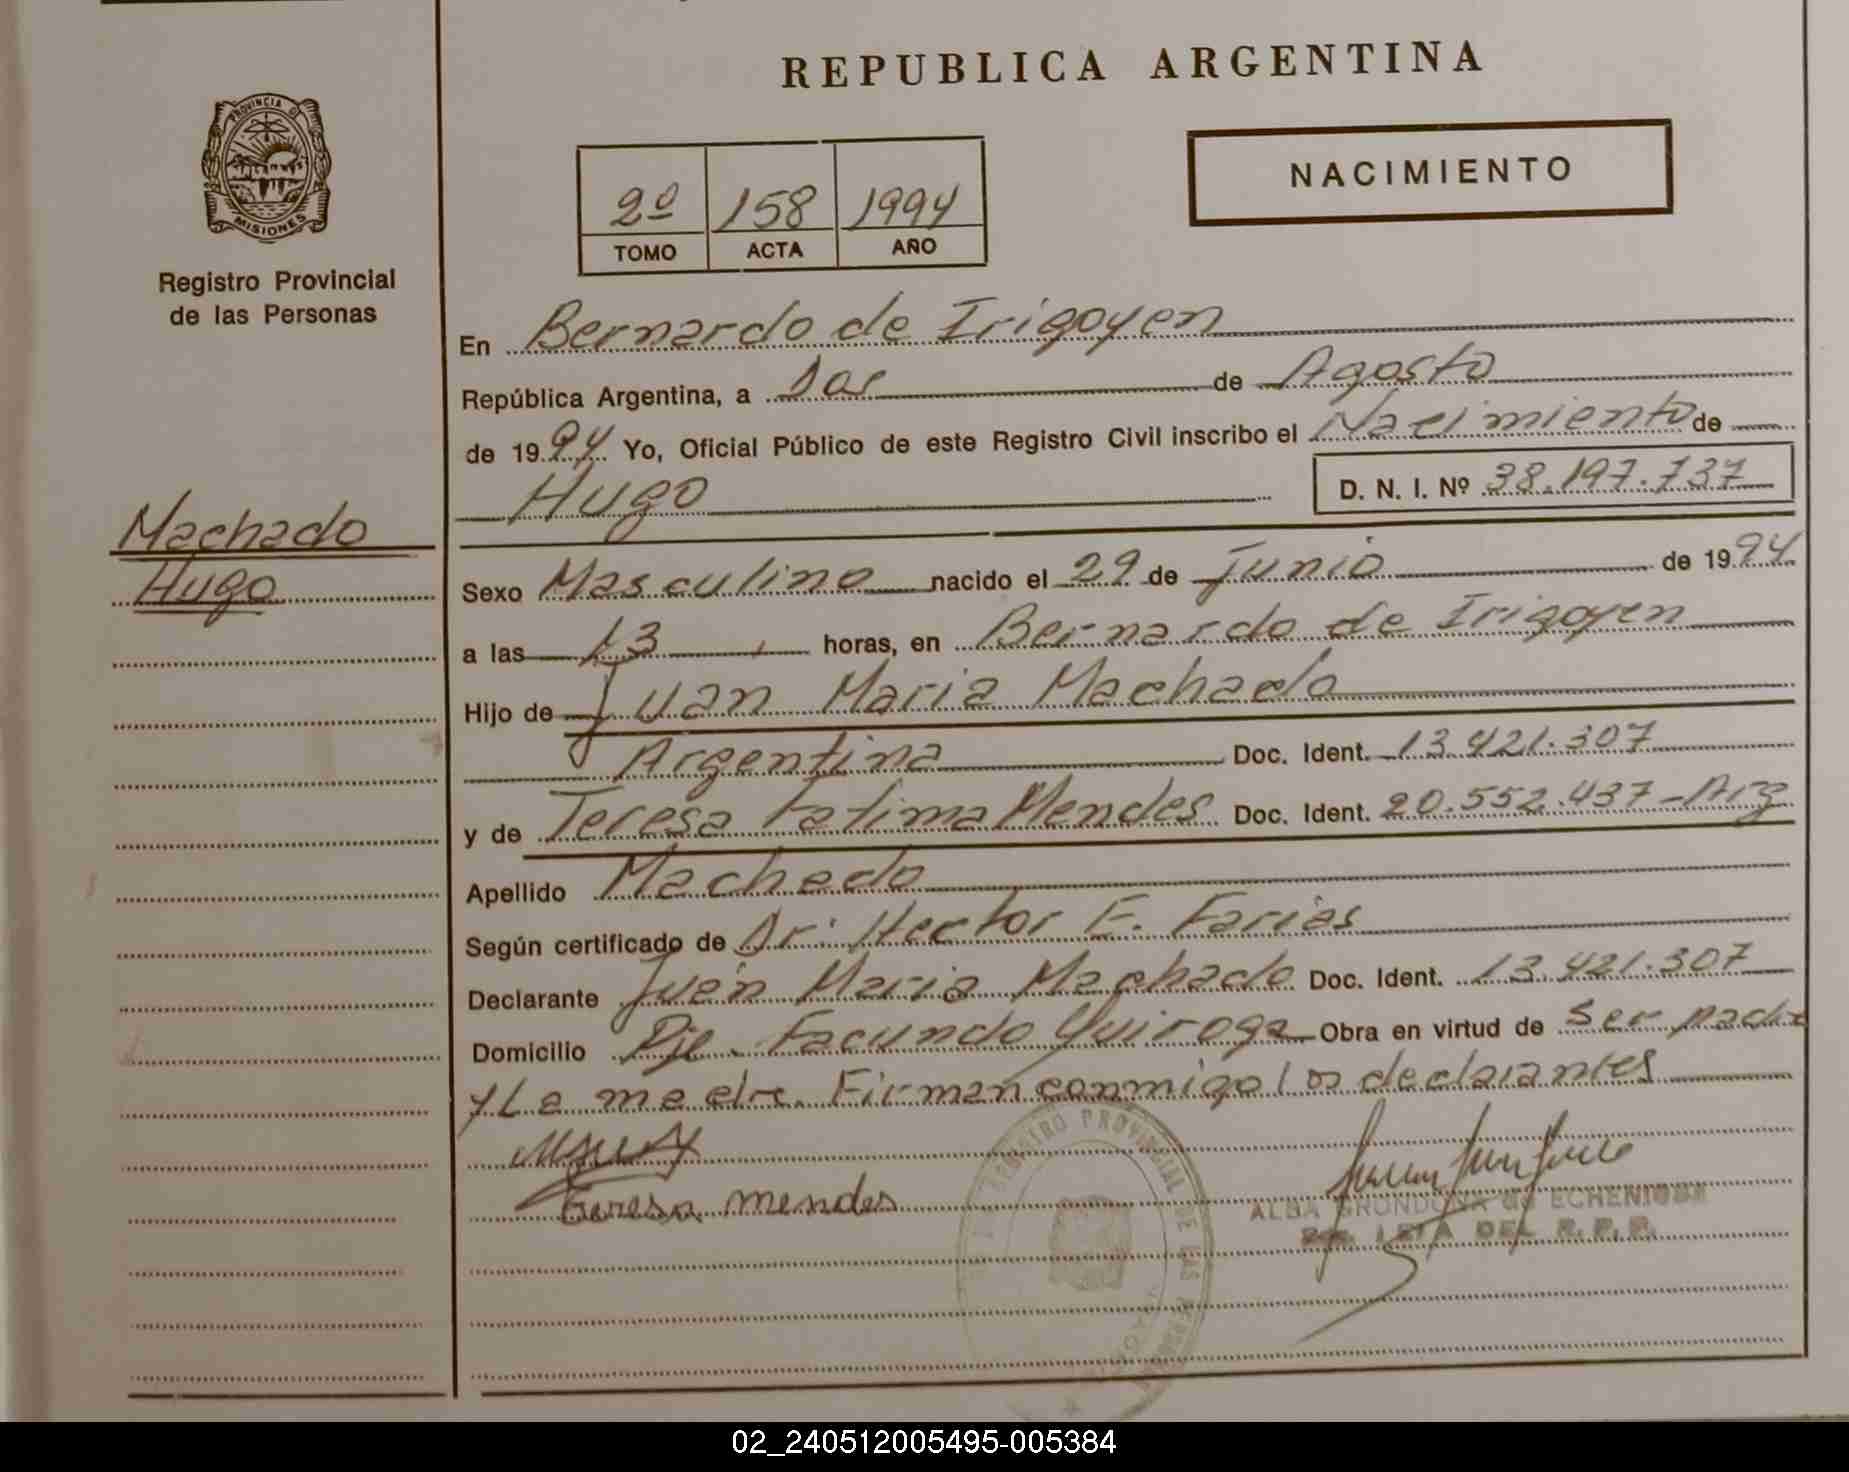 REPUBLICA ARGENTINA
PROVINCIA DE
MISIONES
Registro Provincial
de las Personas
2º 158 1994
TOMO ACTA AÑO
NACIMIENTO
En Bernardo de Irigoyen
República Argentina, a Dos de Agosto
de 1994 Yo, Oficial Público de este Registro Civil inscribo el Nacimiento de
Hugo D. N. I. Nº 38.197.737
Machado
Hugo
Sexo Masculino nacido el 29 de Junio de 1994
a las 13 horas, en Bernardo de Irigoyen
Hijo de Juan Maria Machado
Argentina Doc. Ident. 13.421.307
y de Teresa Fatima Mendes Doc. Ident. 20.552.437-Arg
Apellido Machado
Según certificado de Dr. Hector E. Farias
Declarante Juan Maria Machado Doc. Ident. 13.421.307
Domicilio Pje. Facundo Quiroga Obra en virtud de ser padre
y La madre. Firman conmigo los declarantes
Teresa mendes
REGISTRO PROVINCIAL DE LAS PERSONAS
ALBA GRONDONA de ECHENIQUE
DEL R. P. P.
02_240512005495-005384